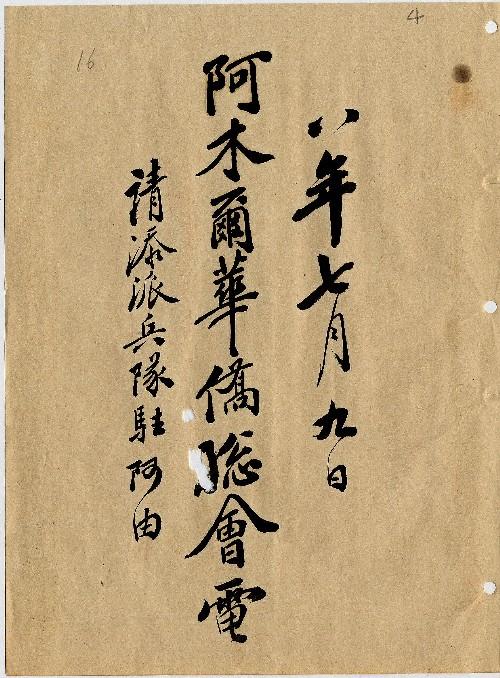 4
16
八年七月九日
阿木爾華僑総會電
請添派兵隊駐阿由